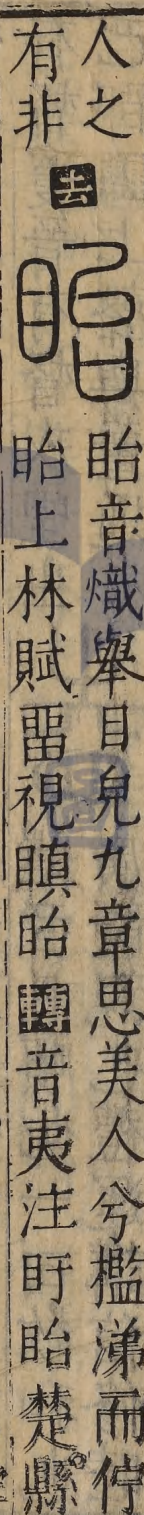 人之
有非
去
眙
眙音熾舉目皃九章思美人兮檻涕而佇
眙上林賦畱視瞋眙轉音夷注盱眙楚縣